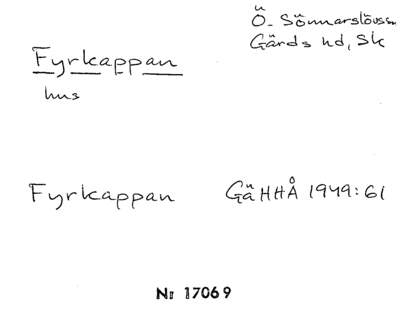 Ö. Sönnarslövs sn
Gärds hd, Sk
Fyrkappan
hus
Fyrkappan GäHHÅ 1949:61
Nr 17069